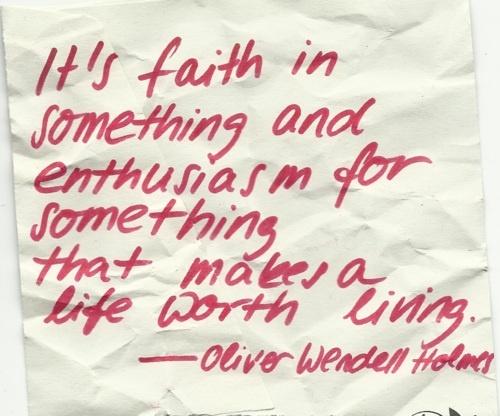 It's faith in
something and
enthusiasm for
something
that makes a
life worth living.
—Oliver Wendell Holmes